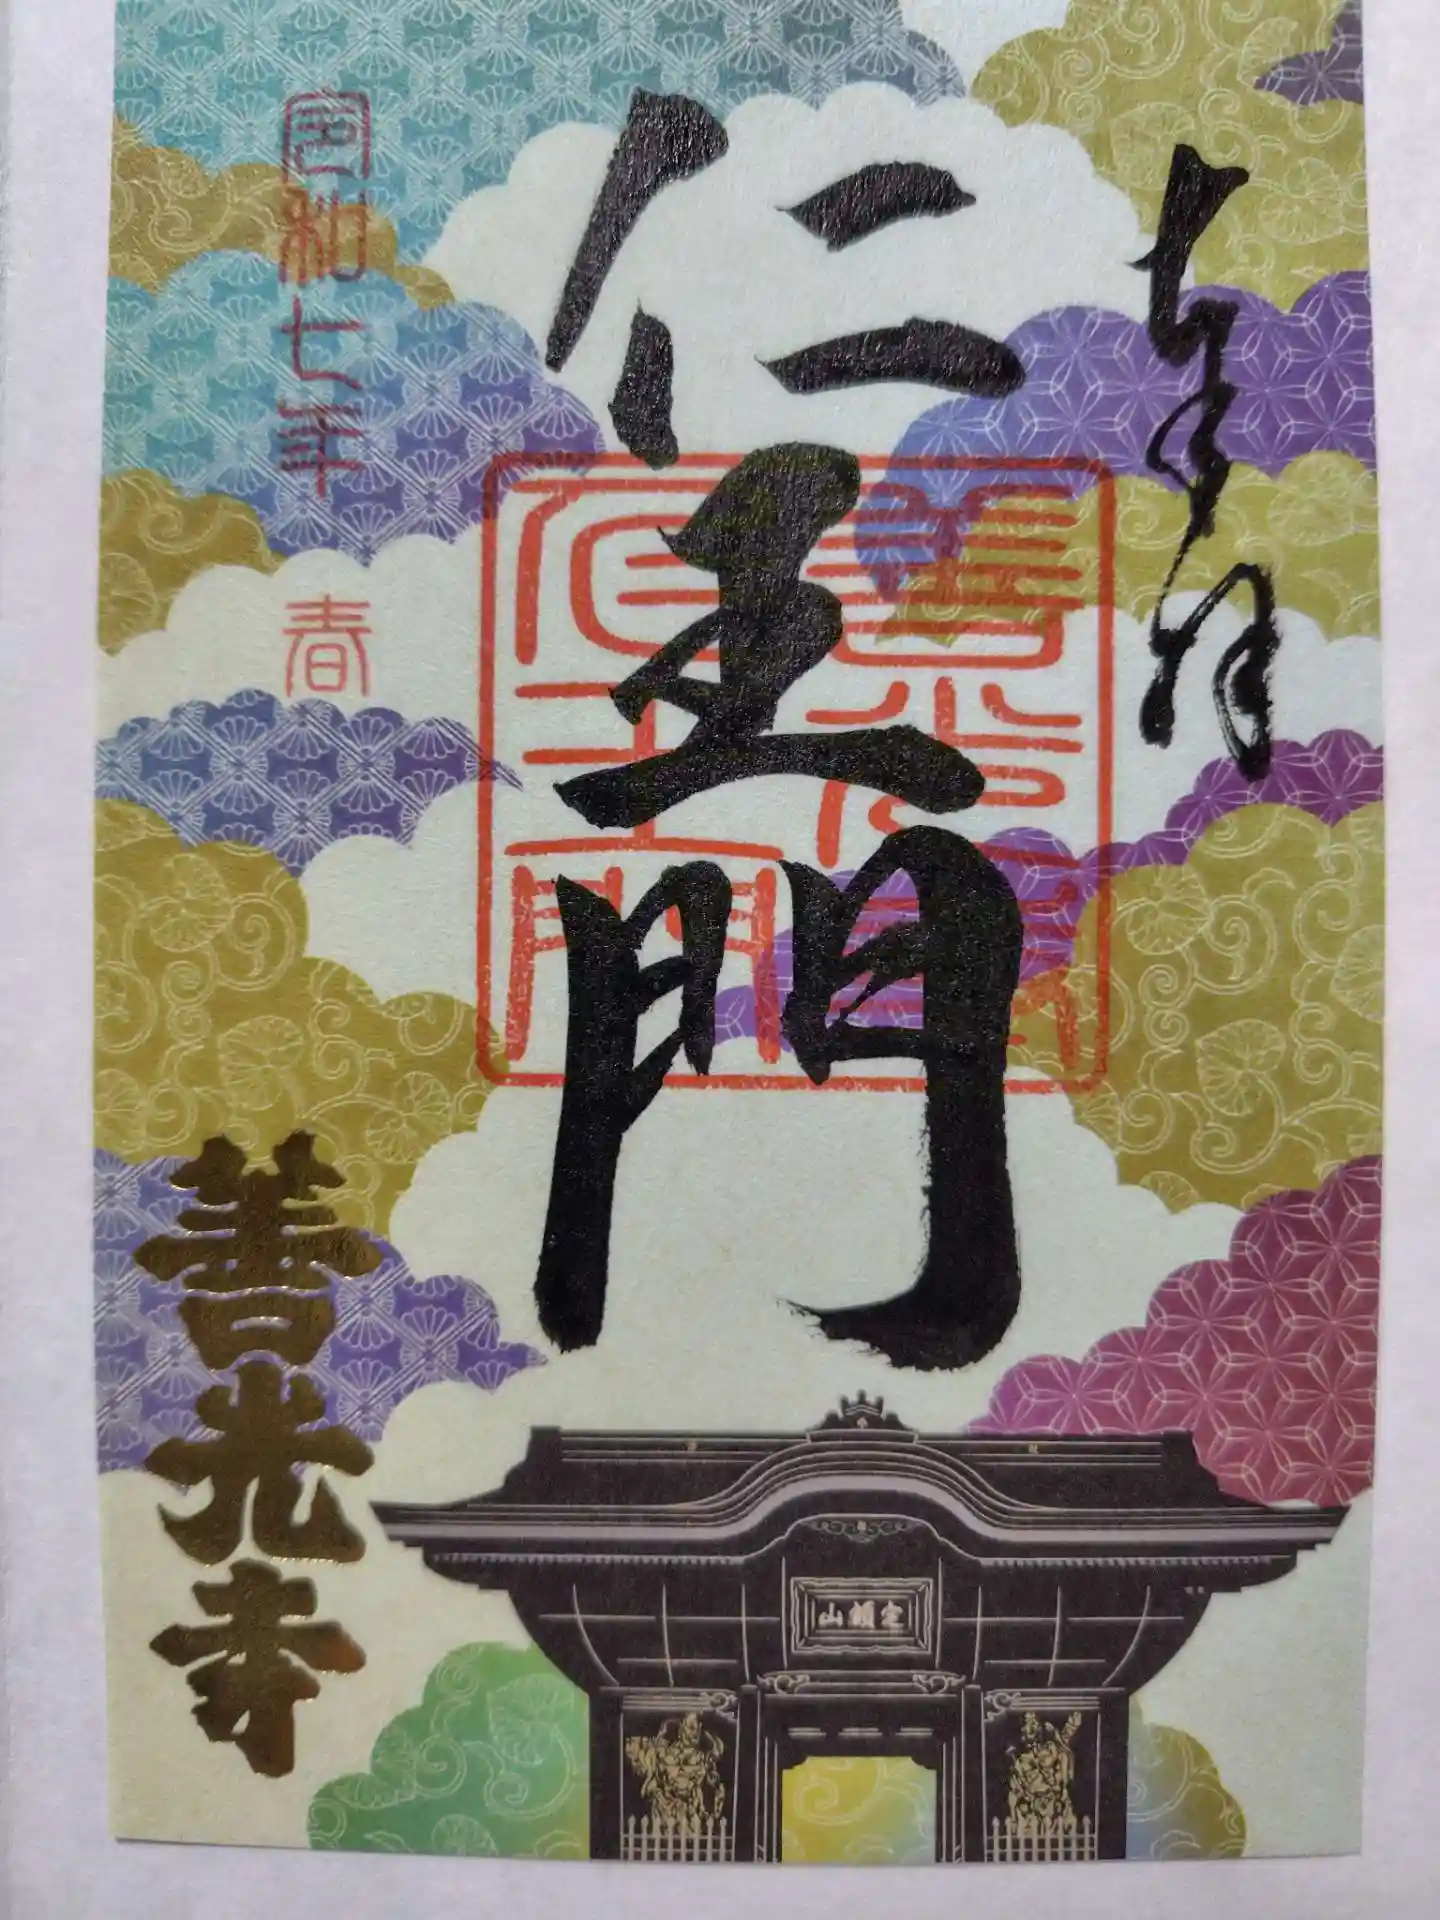 奉拝
仁王門
善光寺
仁王門
令和七年
春
善光寺
定額山